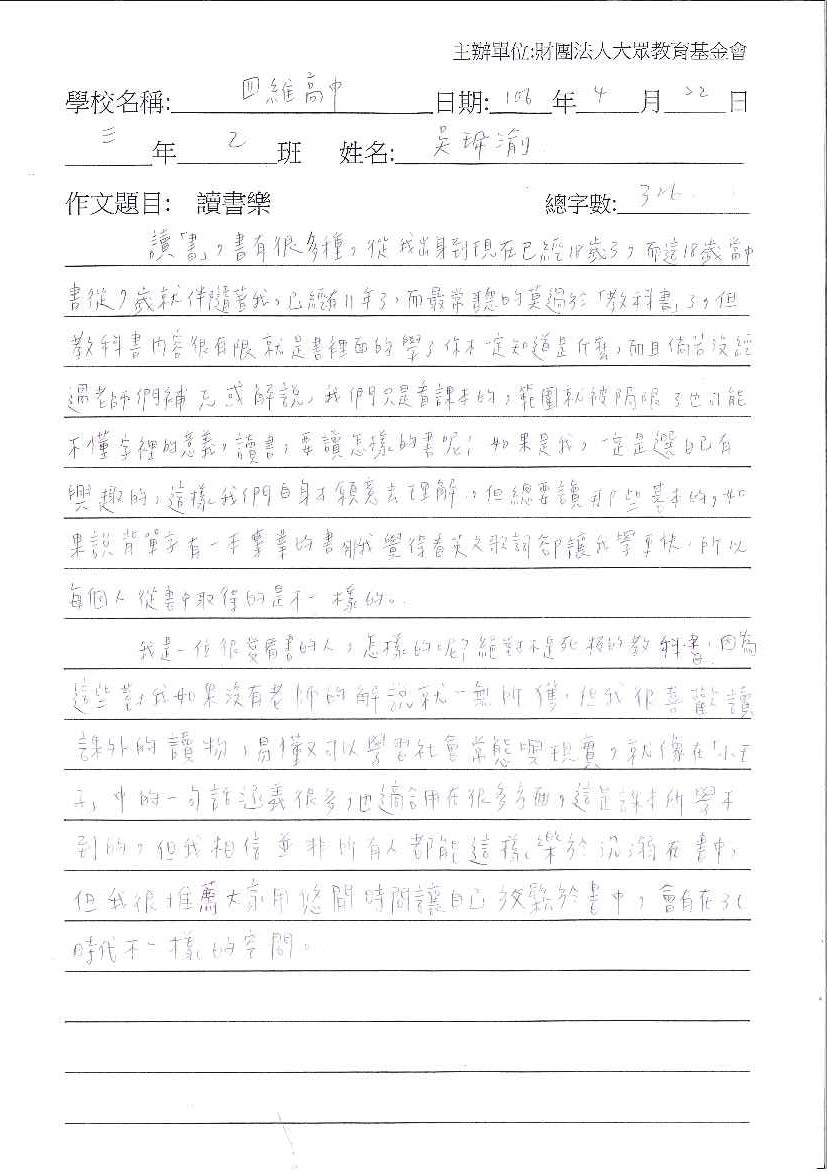 主辦單位:財團法人大眾教育基金會
學校名稱: 四維高中 日期: 106 年 4 月 22 日
三 年 2 班 姓名: 吳 渝
作文題目: 讀書樂 總字數: 326
讀「書」，書有很多種，從我出身到現在已經18歲了，而這18歲當中
書從7歲就伴隨著我，已經有11年了，而最常聽的莫過於「教科書」了，但
教科書內容很有限就是書裡面的學了你不一定知道是什麼，而且倘若沒經
過老師們補充或解說，我們只是看課本的，範圍就被侷限了也可能
不懂字裡的意義，讀書，要讀怎樣的書呢？如果是我，一定是選自己有
興趣的，這樣我們自身才願意去理解，但總要讀那些基本的，如
果說背單字有一本專業的書 我覺得看英文歌詞卻讓我學更快，所以
每個人從書中取得的是不一樣的。
我是一位很愛看書的人，怎樣的呢？絕對不是死板的教科書，因為
這些對我如果沒有老師的解說就一無所獲，但我很喜歡讀
課外的讀物，易懂又可以學習社會常態與現實，就像在「小王
子」中的一句話涵義很多，也適合用在很多方面，這是課本所學不
到的，但我相信並非所有人都能這樣，樂於沉溺在書中，
但我很推薦大家用悠閒時間讓自己放鬆於書中，會有在3C
時代不一樣的空間。